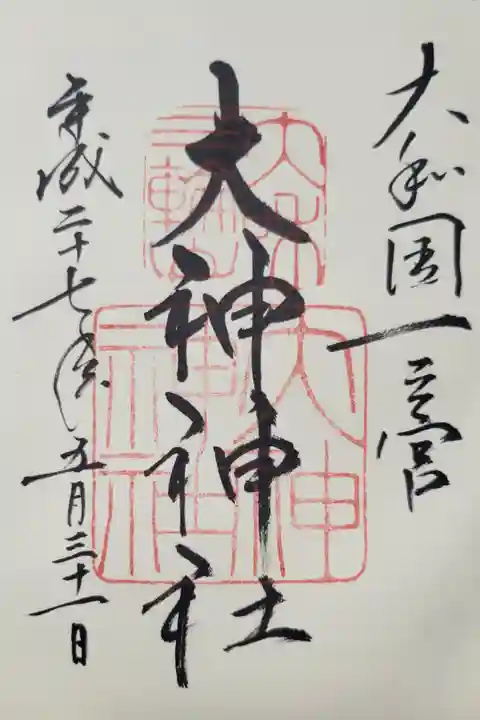 大和国一之宮
大神神社
平成二十七年五月三十一日
大和
三輪山
大神
神社